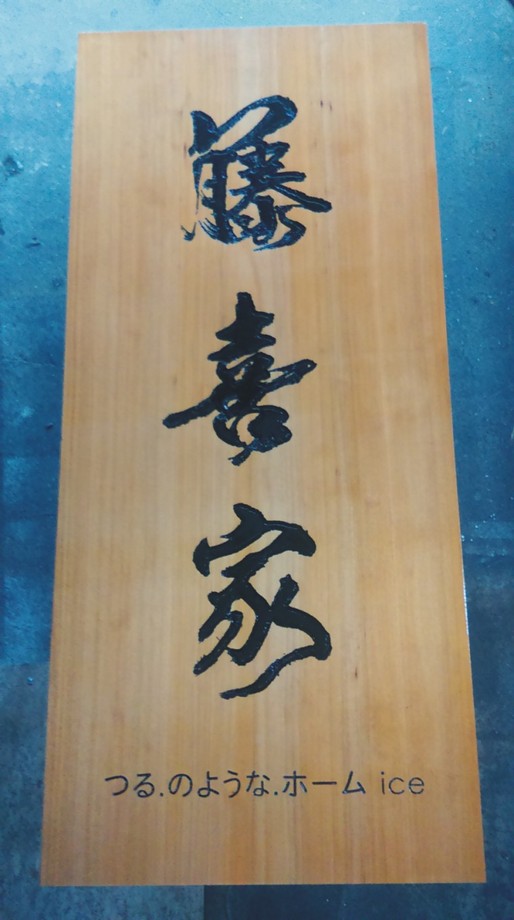 藤喜家
つる.のような.ホーム ice